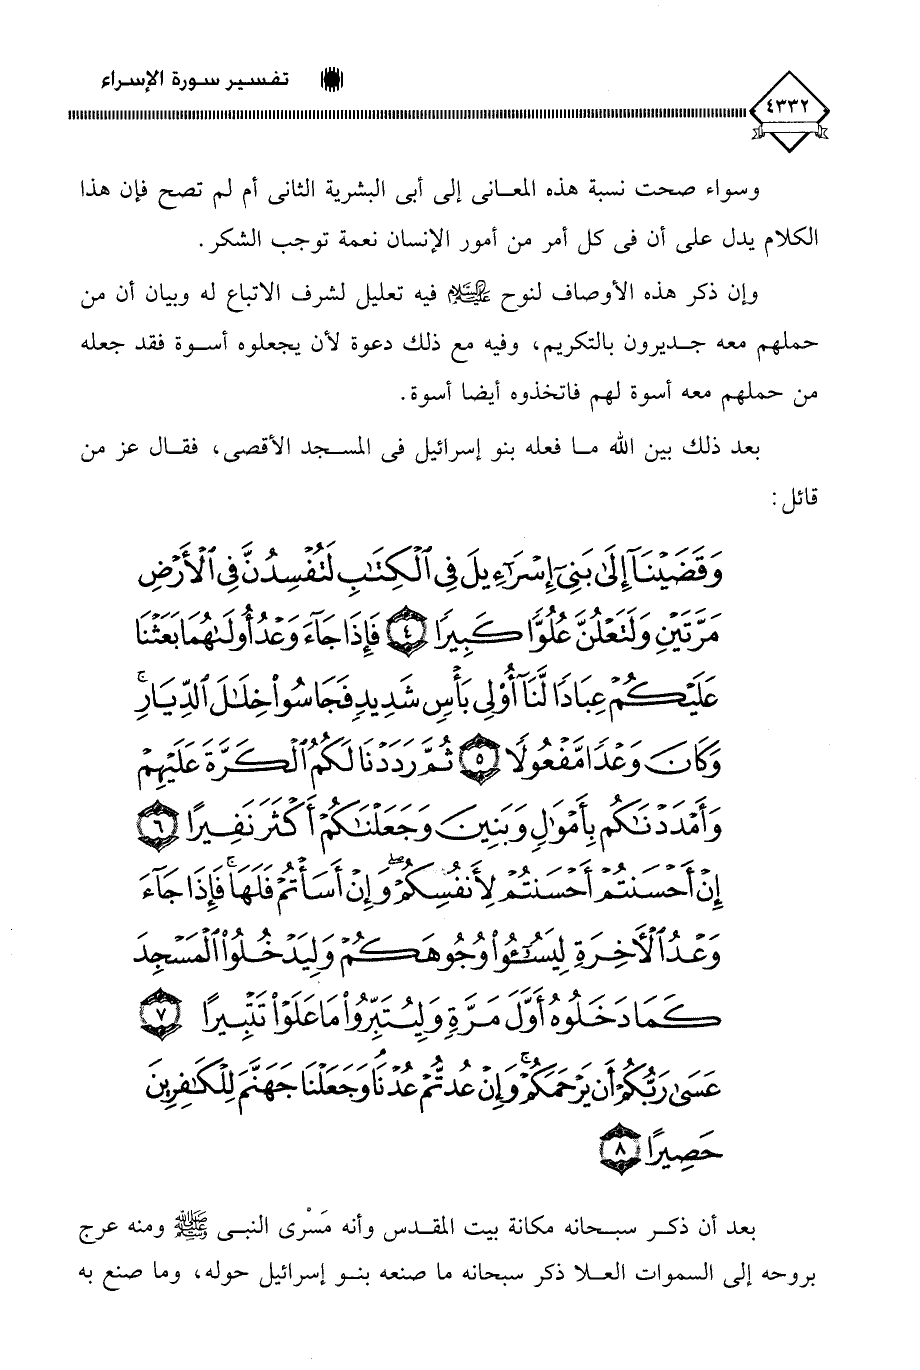 تفسير سورة الإسراء
٤٣٣٢
وسواء صحت نسبة هذه المعانى إلى أبى البشرية الثانى أم لم تصح فإن هذا
الكلام يدل على أن فى كل أمر من أمور الإنسان نعمة توجب الشكر.
وإن ذكر هذه الأوصاف لنوح عليه السلام فيه تعليل لشرف الاتباع له وبيان أن من
حملهم معه جديرون بالتكريم، وفيه مع ذلك دعوة لأن يجعلوه أسوة فقد جعله
من حملهم معه أسوة لهم فاتخذوه أيضا أسوة.
بعد ذلك بين الله ما فعله بنو إسرائيل فى المسجد الأقصى، فقال عز من
قائل:
وَقَضَيْنَآ إِلَىٰ بَنِىٓ إِسْرَٰٓءِيلَ فِى ٱلْكِتَٰبِ لَتُفْسِدُنَّ فِى ٱلْأَرْضِ
مَرَّتَيْنِ وَلَتَعْلُنَّ عُلُوًّا كَبِيرًا ٤ فَإِذَا جَآءَ وَعْدُ أُولَىٰهُمَا بَعَثْنَا
عَلَيْكُمْ عِبَادًا لَّنَآ أُو۟لِى بَأْسٍ شَدِيدٍ فَجَاسُوا۟ خِلَٰلَ ٱلدِّيَارِ ۚ
وَكَانَ وَعْدًا مَّفْعُولًا ٥ ثُمَّ رَدَدْنَا لَكُمُ ٱلْكَرَّةَ عَلَيْهِمْ
وَأَمْدَدْنَٰكُم بِأَمْوَٰلٍ وَبَنِينَ وَجَعَلْنَٰكُمْ أَكْثَرَ نَفِيرًا ٦
إِنْ أَحْسَنتُمْ أَحْسَنتُمْ لِأَنفُسِكُمْ ۖ وَإِنْ أَسَأْتُمْ فَلَهَا ۚ فَإِذَا جَآءَ
وَعْدُ ٱلْءَاخِرَةِ لِيَسُۥٓـُٔوا۟ وُجُوهَكُمْ وَلِيَدْخُلُوا۟ ٱلْمَسْجِدَ
كَمَا دَخَلُوهُ أَوَّلَ مَرَّةٍ وَلِيُتَبِّرُوا۟ مَا عَلَوْا۟ تَتْبِيرًا ٧
عَسَىٰ رَبُّكُمْ أَن يَرْحَمَكُمْ ۚ وَإِنْ عُدتُّمْ عُدْنَا ۘ وَجَعَلْنَا جَهَنَّمَ لِلْكَٰفِرِينَ
حَصِيرًا ٨
بعد أن ذكر سبحانه مكانة بيت المقدس وأنه مَسْرى النبى ﷺ ومنه عرج
بروحه إلى السموات العلا ذكر سبحانه ما صنعه بنو إسرائيل حوله، وما صنع به